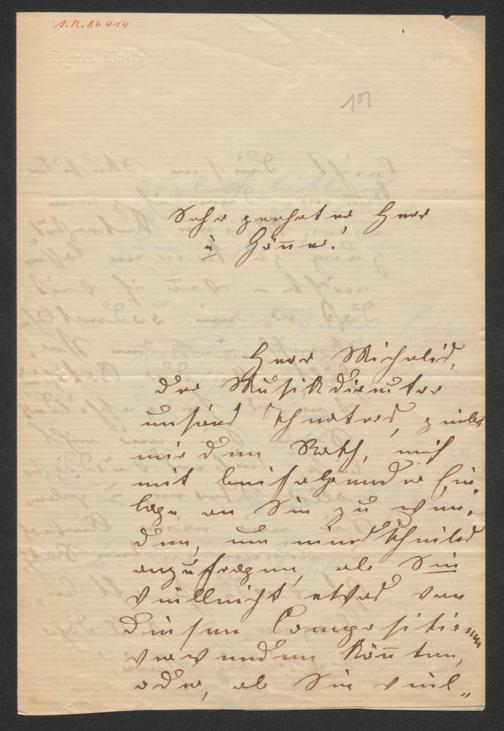 A.N. 86414
Agnes
101
Sehr geehrter Herr
u Gönner!
Herr Michalid,
der Musikdirector
unsers Theaters, giebt
mir den Rath, mich
mit beifolgender Ein-
lage an Sie zu wen-
den, um
anzufragen, ob Sie
vielleicht etwas von
diesen Compositionen
verwenden könnten,
oder, ob Sie viel„